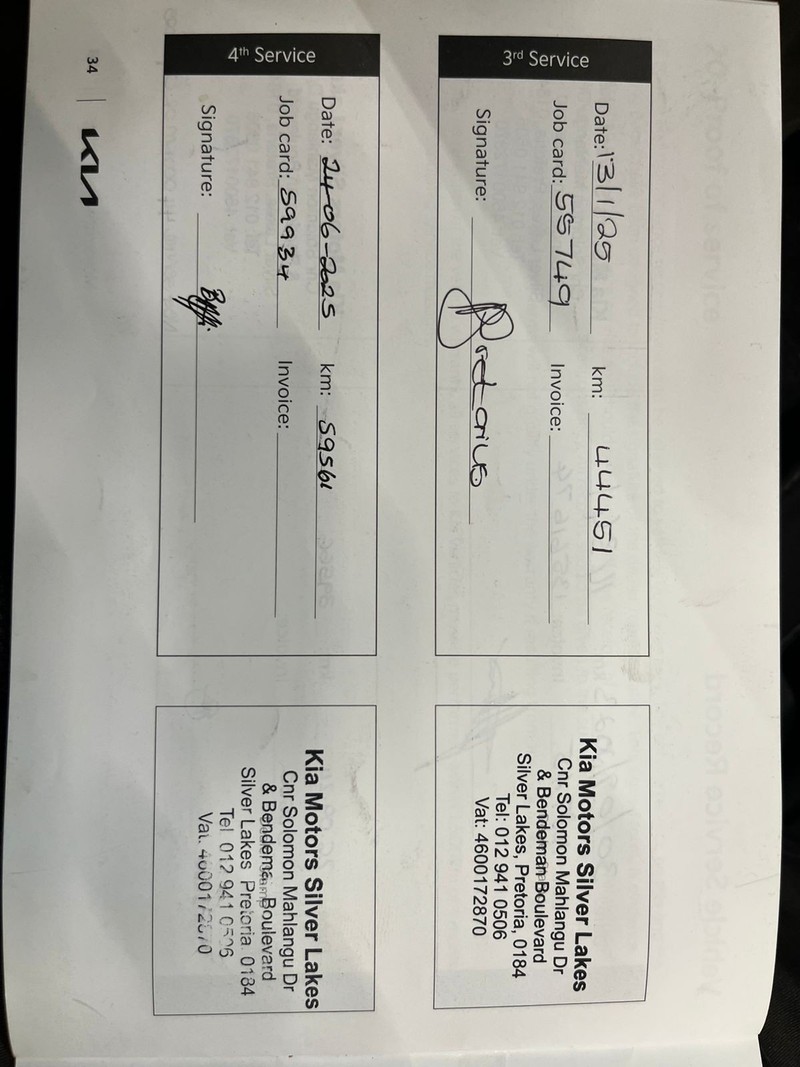 3rd Service
Date: 13/1/25 km: 44451
Job card: 55749 Invoice:
Signature:
Kia Motors Silver Lakes
Cnr Solomon Mahlangu Dr
& Bendeman Boulevard
Silver Lakes, Pretoria, 0184
Tel: 012 941 0506
Vat: 4600172870
4th Service
Date: 24-06-2025 km: 59561
Job card: 59934 Invoice:
Signature:
Kia Motors Silver Lakes
Cnr Solomon Mahlangu Dr
& Bendeman Boulevard
Silver Lakes Pretoria 0184
Tel 012 941 0506
Vat. 4600172870
34 | KIA